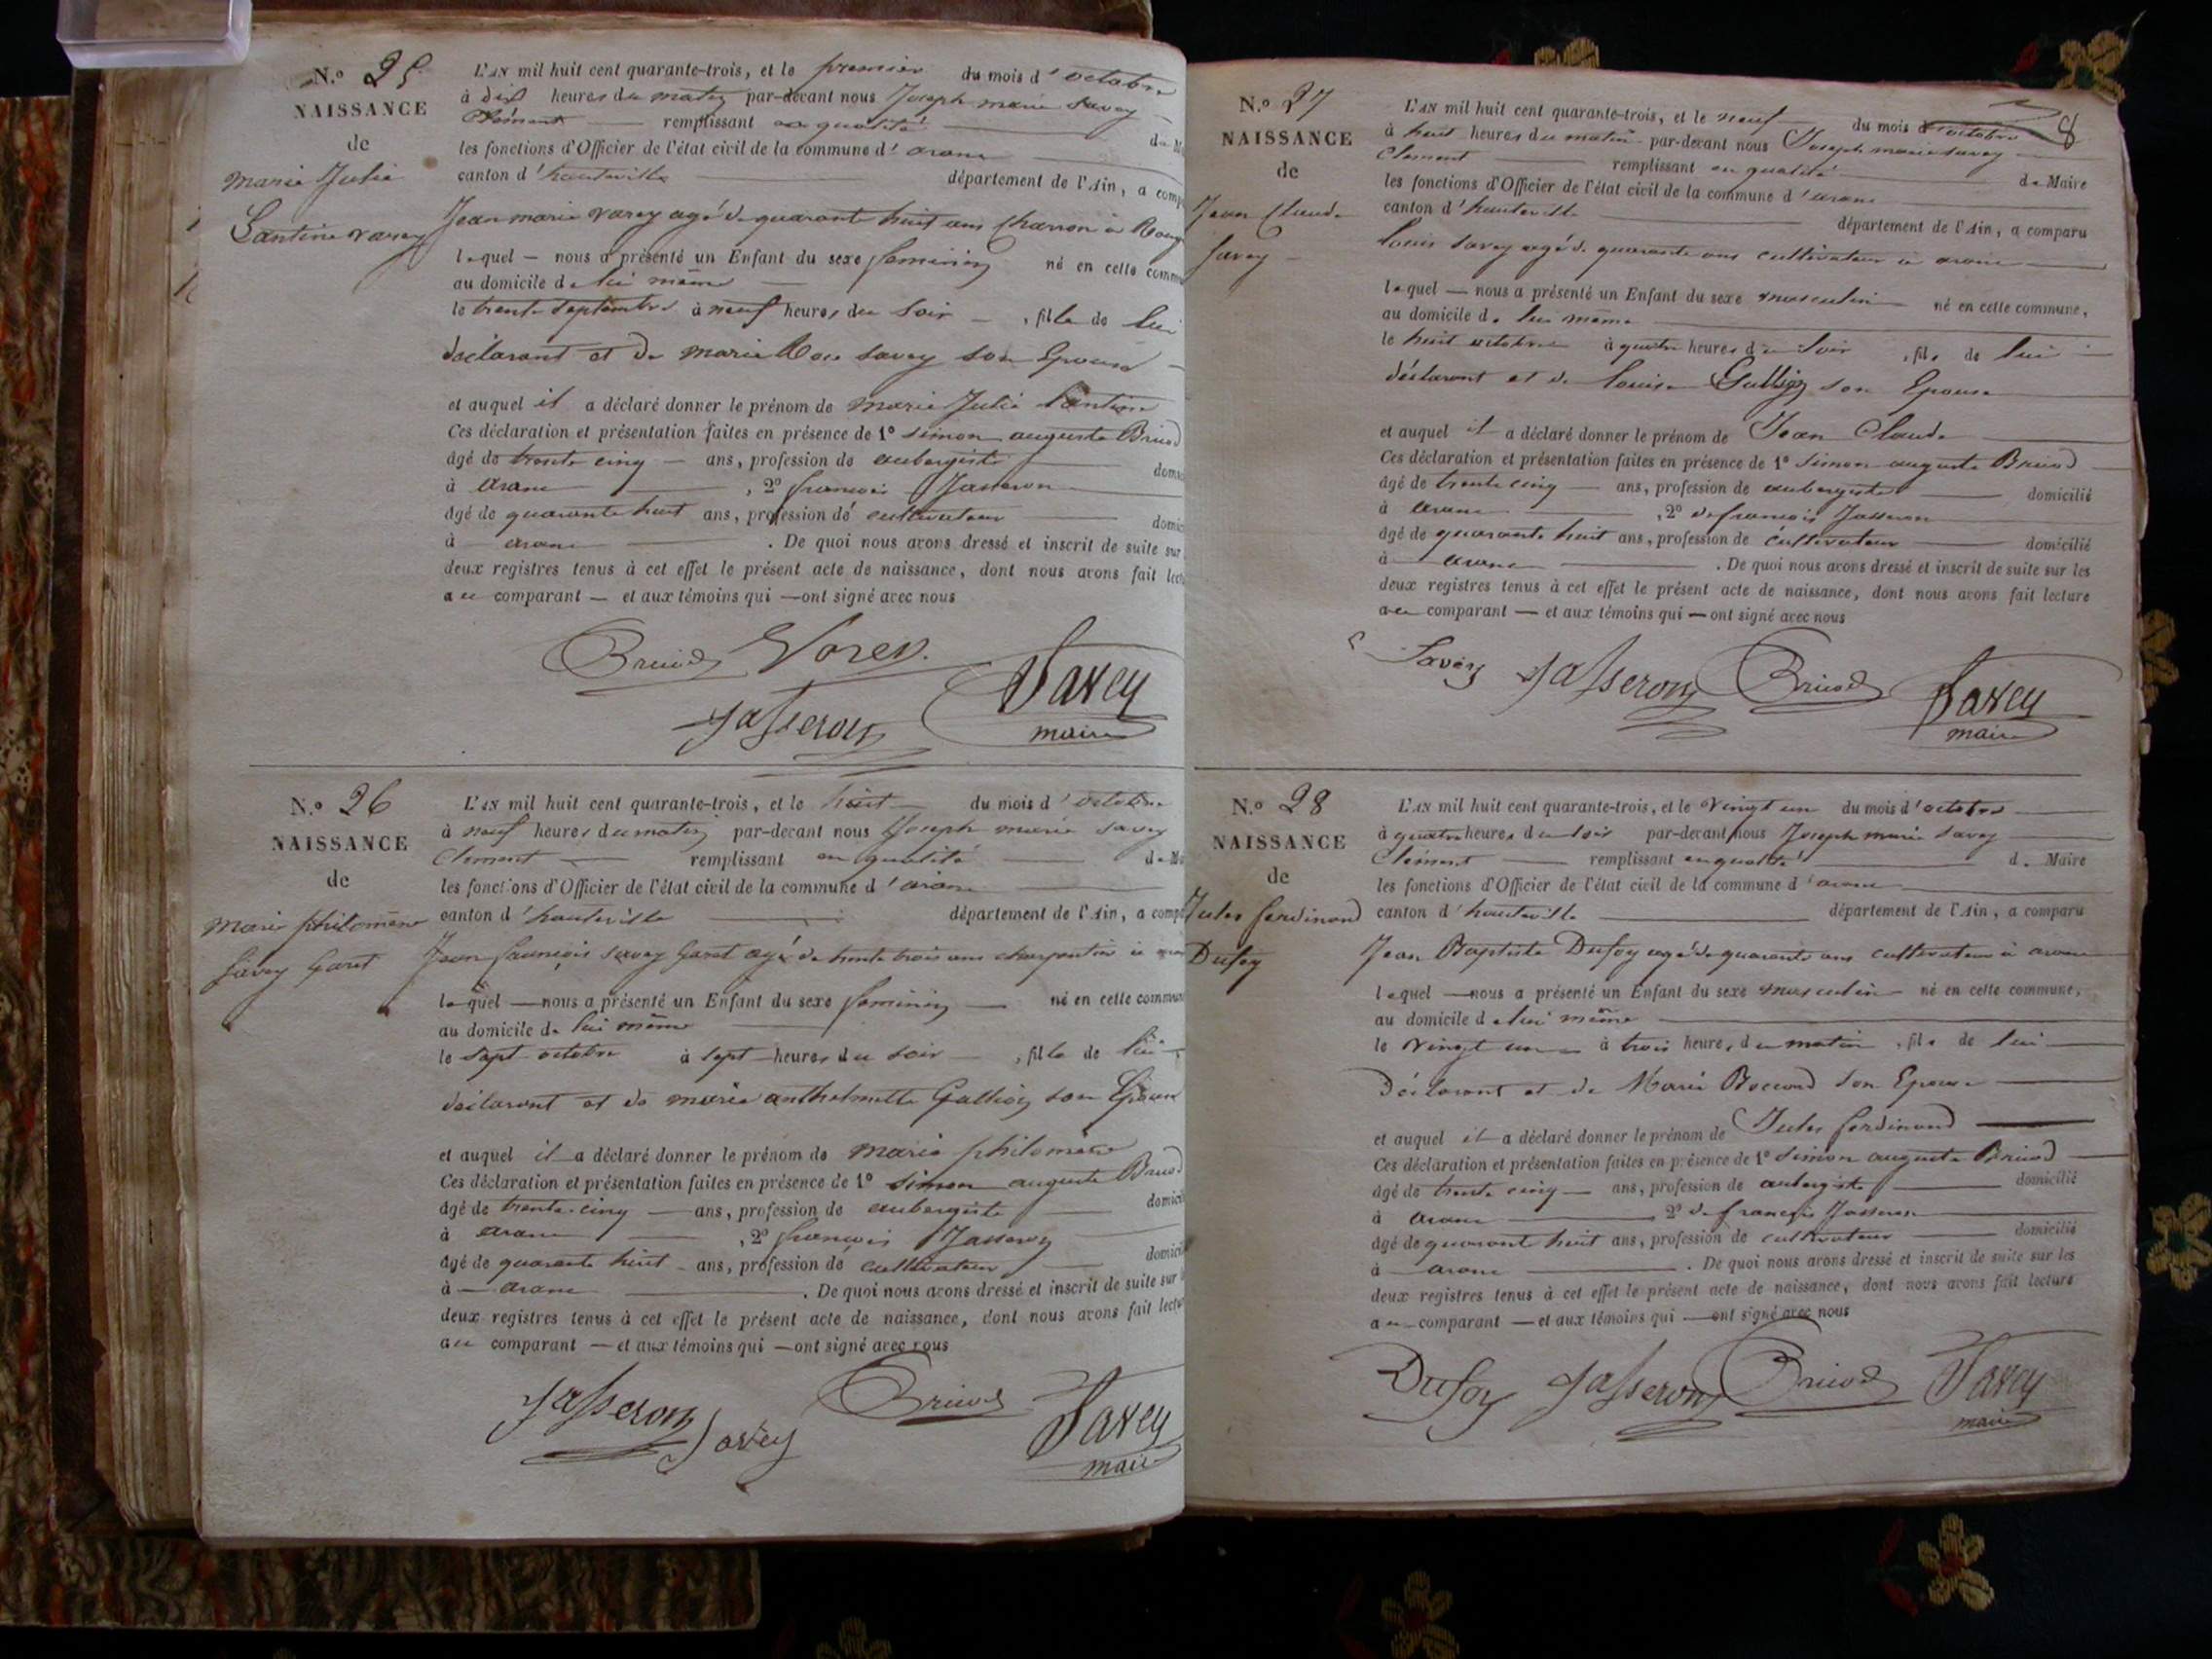 N.º 25
NAISSANCE
de
Marie Julie
Santine Varey
L'AN mil huit cent quarante-trois, et le premier du mois d'octobre
à dix heures du matin par-devant nous Joseph marie Savey
Clément remplissant en qualité
les fonctions d'Officier de l'état civil de la commune d'aranc
canton d'hauteville département de l'Ain, a comp
Jean marie Varey agé de quarante huit ans Charron à
lequel — nous a présenté un Enfant du sexe feminin né en cette commu
au domicile de lui même
le trente septembre à neuf heures du soir , fille de lui
déclarant et de marie Savey son Epouse
et auquel il a déclaré donner le prénom de marie Julie Santine
Ces déclaration et présentation faites en présence de 1º simon auguste Brucod
âgé de trente cinq — ans, profession de aubergiste domi
à aranc , 2º francois Jasseron
âgé de quarante huit ans, profession de cultivateur domic
à aranc . De quoi nous avons dressé et inscrit de suite sur
deux registres tenus à cet effet le présent acte de naissance, dont nous avons fait lect
au comparant — et aux témoins qui — ont signé avec nous
Varey
Jasseron
Savey
maire
N.º 26
NAISSANCE
de
Marie philomène
Savey Garet
L'AN mil huit cent quarante-trois, et le huit du mois d'octobre
à neuf heures du matin par-devant nous Joseph marie savey
Clement remplissant en qualité de Ma
les fonctions d'Officier de l'état civil de la commune d'aranc
canton d'hauteville département de l'Ain, a comp
Jean francois Savey Garet agé de trente trois ans charpentier à aranc
lequel — nous a présenté un Enfant du sexe feminin né en cette commun
au domicile de lui même
le sept octobre à sept heures du soir , fille de lui
déclarant et de marie anthelmette Gallioz son Epouse
et auquel il a déclaré donner le prénom de marie philomène
Ces déclaration et présentation faites en présence de 1º simon auguste
âgé de trente cinq — ans, profession de aubergiste domici
à aranc , 2º francois Jasseron
âgé de quarante huit ans, profession de cultivateur domici
à aranc . De quoi nous avons dressé et inscrit de suite sur
deux registres tenus à cet effet le présent acte de naissance, dont nous avons fait lectu
au comparant — et aux témoins qui — ont signé avec nous
Jasseron
Savey
Savey
maire
8
N.º 27
NAISSANCE
de
Jean Claude
Savey
L'AN mil huit cent quarante-trois, et le neuf du mois d'octobre
à huit heures du matin par-devant nous Joseph marie savey
Clement remplissant en qualité de Maire
les fonctions d'Officier de l'état civil de la commune d'aranc
canton d'hauteville département de l'Ain, a comparu
louis savey agé de quarante ans cultivateur à aranc
lequel — nous a présenté un Enfant du sexe masculin né en cette commune,
au domicile de lui même
le huit octobre à quatre heures du soir , fils de lui
déclarant et de louise Gallioz son Epouse
et auquel il a déclaré donner le prénom de Jean Claude
Ces déclaration et présentation faites en présence de 1º Simon auguste
âgé de trente cinq — ans, profession de aubergiste domicilié
à aranc , 2º de francois Jasseron
âgé de quarante huit ans, profession de cultivateur domicilié
à aranc . De quoi nous avons dressé et inscrit de suite sur les
deux registres tenus à cet effet le présent acte de naissance, dont nous avons fait lecture
au comparant — et aux témoins qui — ont signé avec nous
Savey Jasseron Savey
maire
N.º 28
NAISSANCE
de
Jules ferdinand
Dufoy
L'AN mil huit cent quarante-trois, et le vingt un du mois d'octobre
à quatre heures du soir par-devant nous Joseph marie savey
Clément remplissant en qualité de Maire
les fonctions d'Officier de l'état civil de la commune d'aranc
canton d'hauteville département de l'Ain, a comparu
Jean Baptiste Dufoy agé de quarante ans cultivateur à aranc
lequel — nous a présenté un Enfant du sexe masculin né en cette commune,
au domicile de lui même
le vingt un à trois heures du matin , fils de lui
Déclarant et de Marie son Epouse
et auquel il a déclaré donner le prénom de Jules ferdinand
Ces déclaration et présentation faites en présence de 1º Simon auguste
âgé de trente cinq — ans, profession de aubergiste domicilié
à aranc 2º de françois Jasseron
âgé de quarante huit ans, profession de cultivateur domicilié
à aranc . De quoi nous avons dressé et inscrit de suite sur les
deux registres tenus à cet effet le présent acte de naissance, dont nous avons fait lecture
au comparant — et aux témoins qui — ont signé avec nous
Dufoy Jasseron Savey
maire